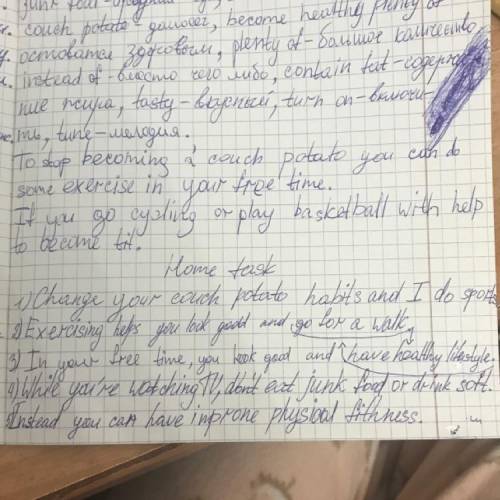 junk
couch potato - домосед, become healthy plenty of
оставатся здоровым, plenty of - большое количество,
instead of - вместо чего либо, contain fat - содержа-
ние жира, tasty - вкусный, turn on - включи-
ть, tune - мелодия.
To stop becoming a couch potato you can do
some exercise in your free time.
If you go cycling or play basketball with help
to become fit.
Home task
1) Change your couch potato habits and I do sports
2) Exercising helps you look good and go for a walk,
3) In your free time, you look good and have healthy lifestyle.
4) While you're watching TV, don't eat junk food or drink soft.
Instead you can have improne physical fithness.